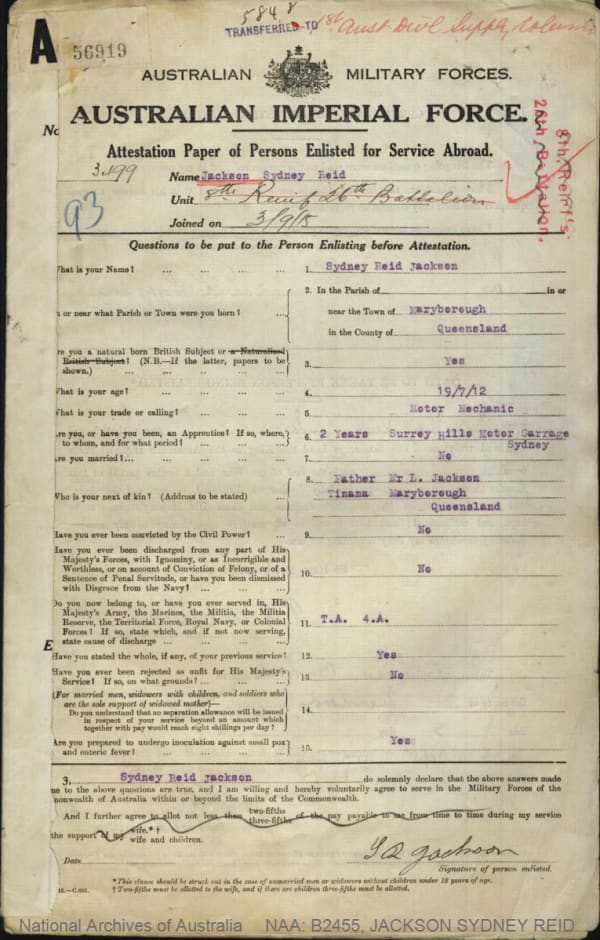 5848
TRANSFERRED TO 1st Aust Divl Supply Column
A
56919
AUSTRALIAN MILITARY FORCES.
AUSTRALIAN IMPERIAL FORCE.
No
Attestation Paper of Persons Enlisted for Service Abroad.
8th. Reinf's
26th. Battalion.
3899
93
Name Jackson Sydney Reid
Unit 8th Reinf 26th Battalion
Joined on 3/9/15
Questions to be put to the Person Enlisting before Attestation.
What is your Name? ... ... ... ... 1. Sydney Reid Jackson
2. In the Parish of in or
n or near what Parish or Town were you born? ... near the Town of Maryborough
in the County of Queensland
re you a natural born British Subject or a Naturalized
British Subject? (N.B.—If the latter, papers to be
shown.) ... ... ... ... 3. Yes
What is your age? ... ... ... ... 4. 19/7/12
What is your trade or calling? ... ... ... 5. Motor Mechanic
Are you, or have you been, an Apprentice? If so, where,
to whom, and for what period? ... ... ... 6. 2 Years Surrey Hills Motor Garrage
Sydney
Are you married?... ... ... ... ... 7. No
8. Father Mr L. Jackson
Who is your next of kin? (Address to be stated) ... Tinana Maryborough
Queensland
Have you ever been convicted by the Civil Power? ... 9. No
Have you ever been discharged from any part of His
Majesty's Forces, with Ignominy, or as Incorrigible and
Worthless, or on account of Conviction of Felony, or of a
Sentence of Penal Servitude, or have you been dismissed
with Disgrace from the Navy? ... ... ... 10. No
Do you now belong to, or have you ever served in, His
Majesty's Army, the Marines, the Militia, the Militia
Reserve, the Territorial Force, Royal Navy, or Colonial
Forces? If so, state which, and if not now serving,
state cause of discharge ... ... ... ... 11. T.A. 4.A.
E
Have you stated the whole, if any, of your previous service? 12. Yes
Have you ever been rejected as unfit for His Majesty's
Service? If so, on what grounds? ... ... ... 13. No
(For married men, widowers with children, and soldiers who
are the sole support of widowed mother)—
Do you understand that no separation allowance will be issued
in respect of your service beyond an amount which
together with pay would reach eight shillings per day? 14.
Are you prepared to undergo inoculation against small pox
and enteric fever? ... ... ... ... 15. Yes
3, Sydney Reid Jackson do solemnly declare that the above answers made
me to the above questions are true, and I am willing and hereby voluntarily agree to serve in the Military Forces of the
monwealth of Australia within or beyond the limits of the Commonwealth.
And I further agree to allot not less than two-fifths three-fifths of the pay payable to me from time to time during my service
the support of my wife.*† wife and children.
S R Jackson
Date Signature of person enlisted.
* This clause should be struck out in the case of unmarried men or widowers without children under 18 years of age.
† Two-fifths must be allotted to the wife, and if there are children three-fifths must be allotted.
National Archives of Australia NAA: B2455, JACKSON SYDNEY REID